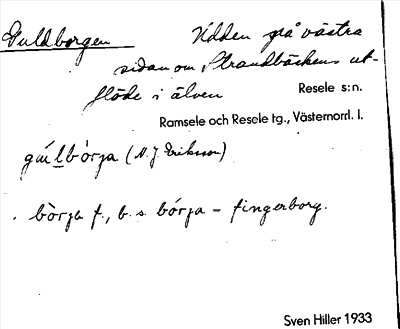 Guldborgen Udden på västra
sidan om Strandbäckens ut-
flöde i älven Resele s:n.
Ramsele och Resele tg., Västernorrl. l.
gúlbòrja (N. J. Eriksson)
bòrja f., b. s. bórja - fingerborg.
Sven Hiller 1933